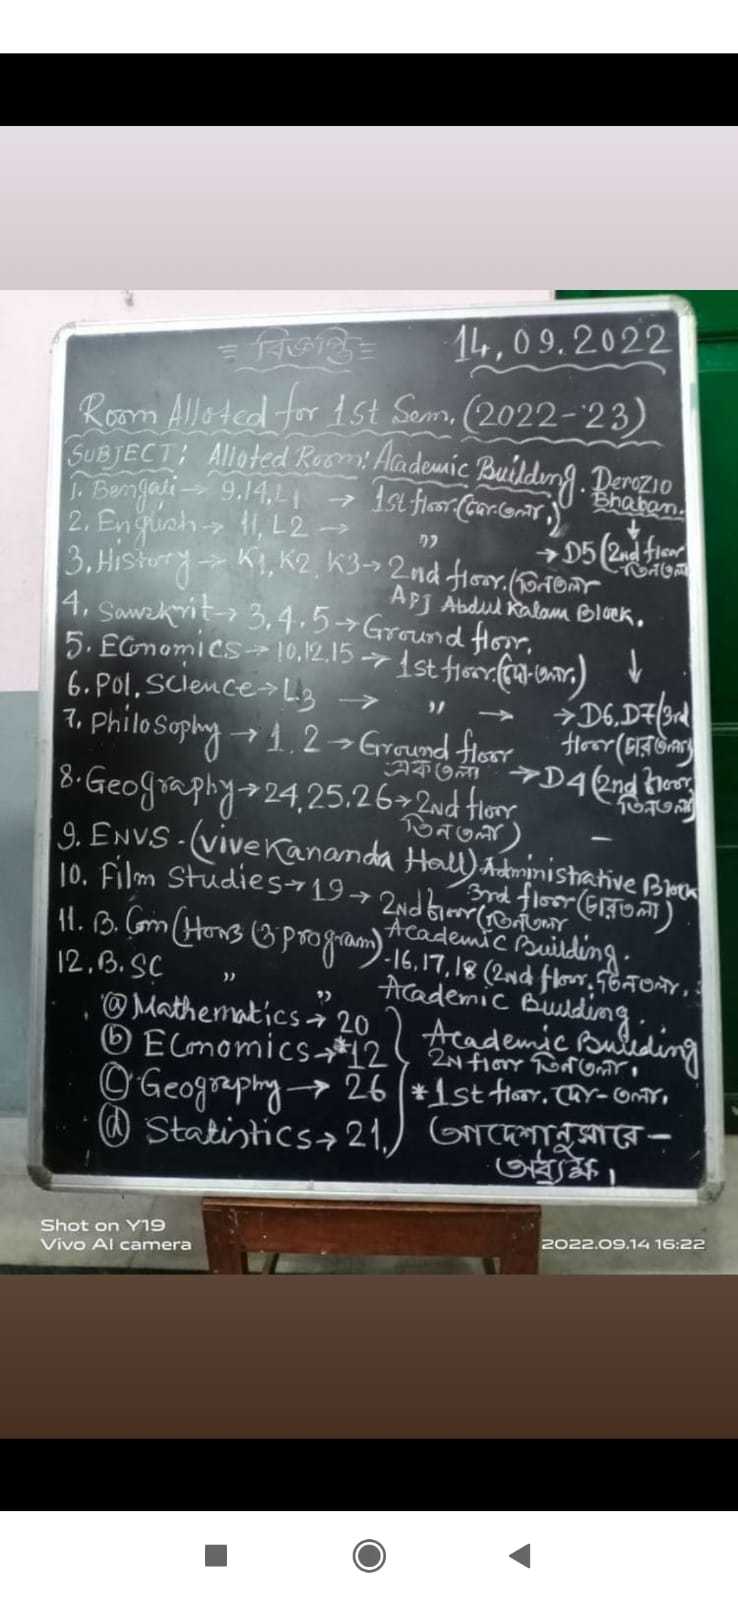 = বিজ্ঞপ্তি =
14.09.2022
Room Alloted for 1st Sem. (2022-'23)
SUBJECT: Alloted Room: Academic Building. Derozio Bhaban.
1. Bengali → 9.14, L1 → 1st floor.
2. English → 11, L2 → " → D5 (2nd floor তিনতলা
3. History → K1, K2, K3 → 2nd floor. (তিনতলা
APJ Abdul Kalam Block.
4. Sanskrit → 3.4.5 → Ground floor.
5. Economics → 10,12,15 → 1st floor (দো-তলা.) ↓
6. Pol. Science → L3 → " → → D6, D7 (3rd
floor (চারতলা)
7. Philosophy → 1. 2 → Ground floor
একতলা → D4 (2nd floor
তিনতলা)
8. Geography → 24,25.26 → 2nd floor
তিনতলা) —
9. ENVS - (Vivekananda Hall) Administrative Block
3rd floor (চারতলা)
10. Film Studies → 19 → 2nd floor (তিনতলা
Academic Building.
11. B. Com (Hons ও program) - 16,17,18 (2nd floor, তিনতলা.
Academic Building.
12. B.SC " "
(a) Mathematics → 20
(b) Economics → *12
(c) Geography → 26
(d) Statistics → 21.
Academic Building
2nd floor তিনতলা.
*1st floor. দো-তলা.
আদেশানুসারে —
অধ্যক্ষ।
Shot on Y19
Vivo AI camera
2022.09.14 16:22